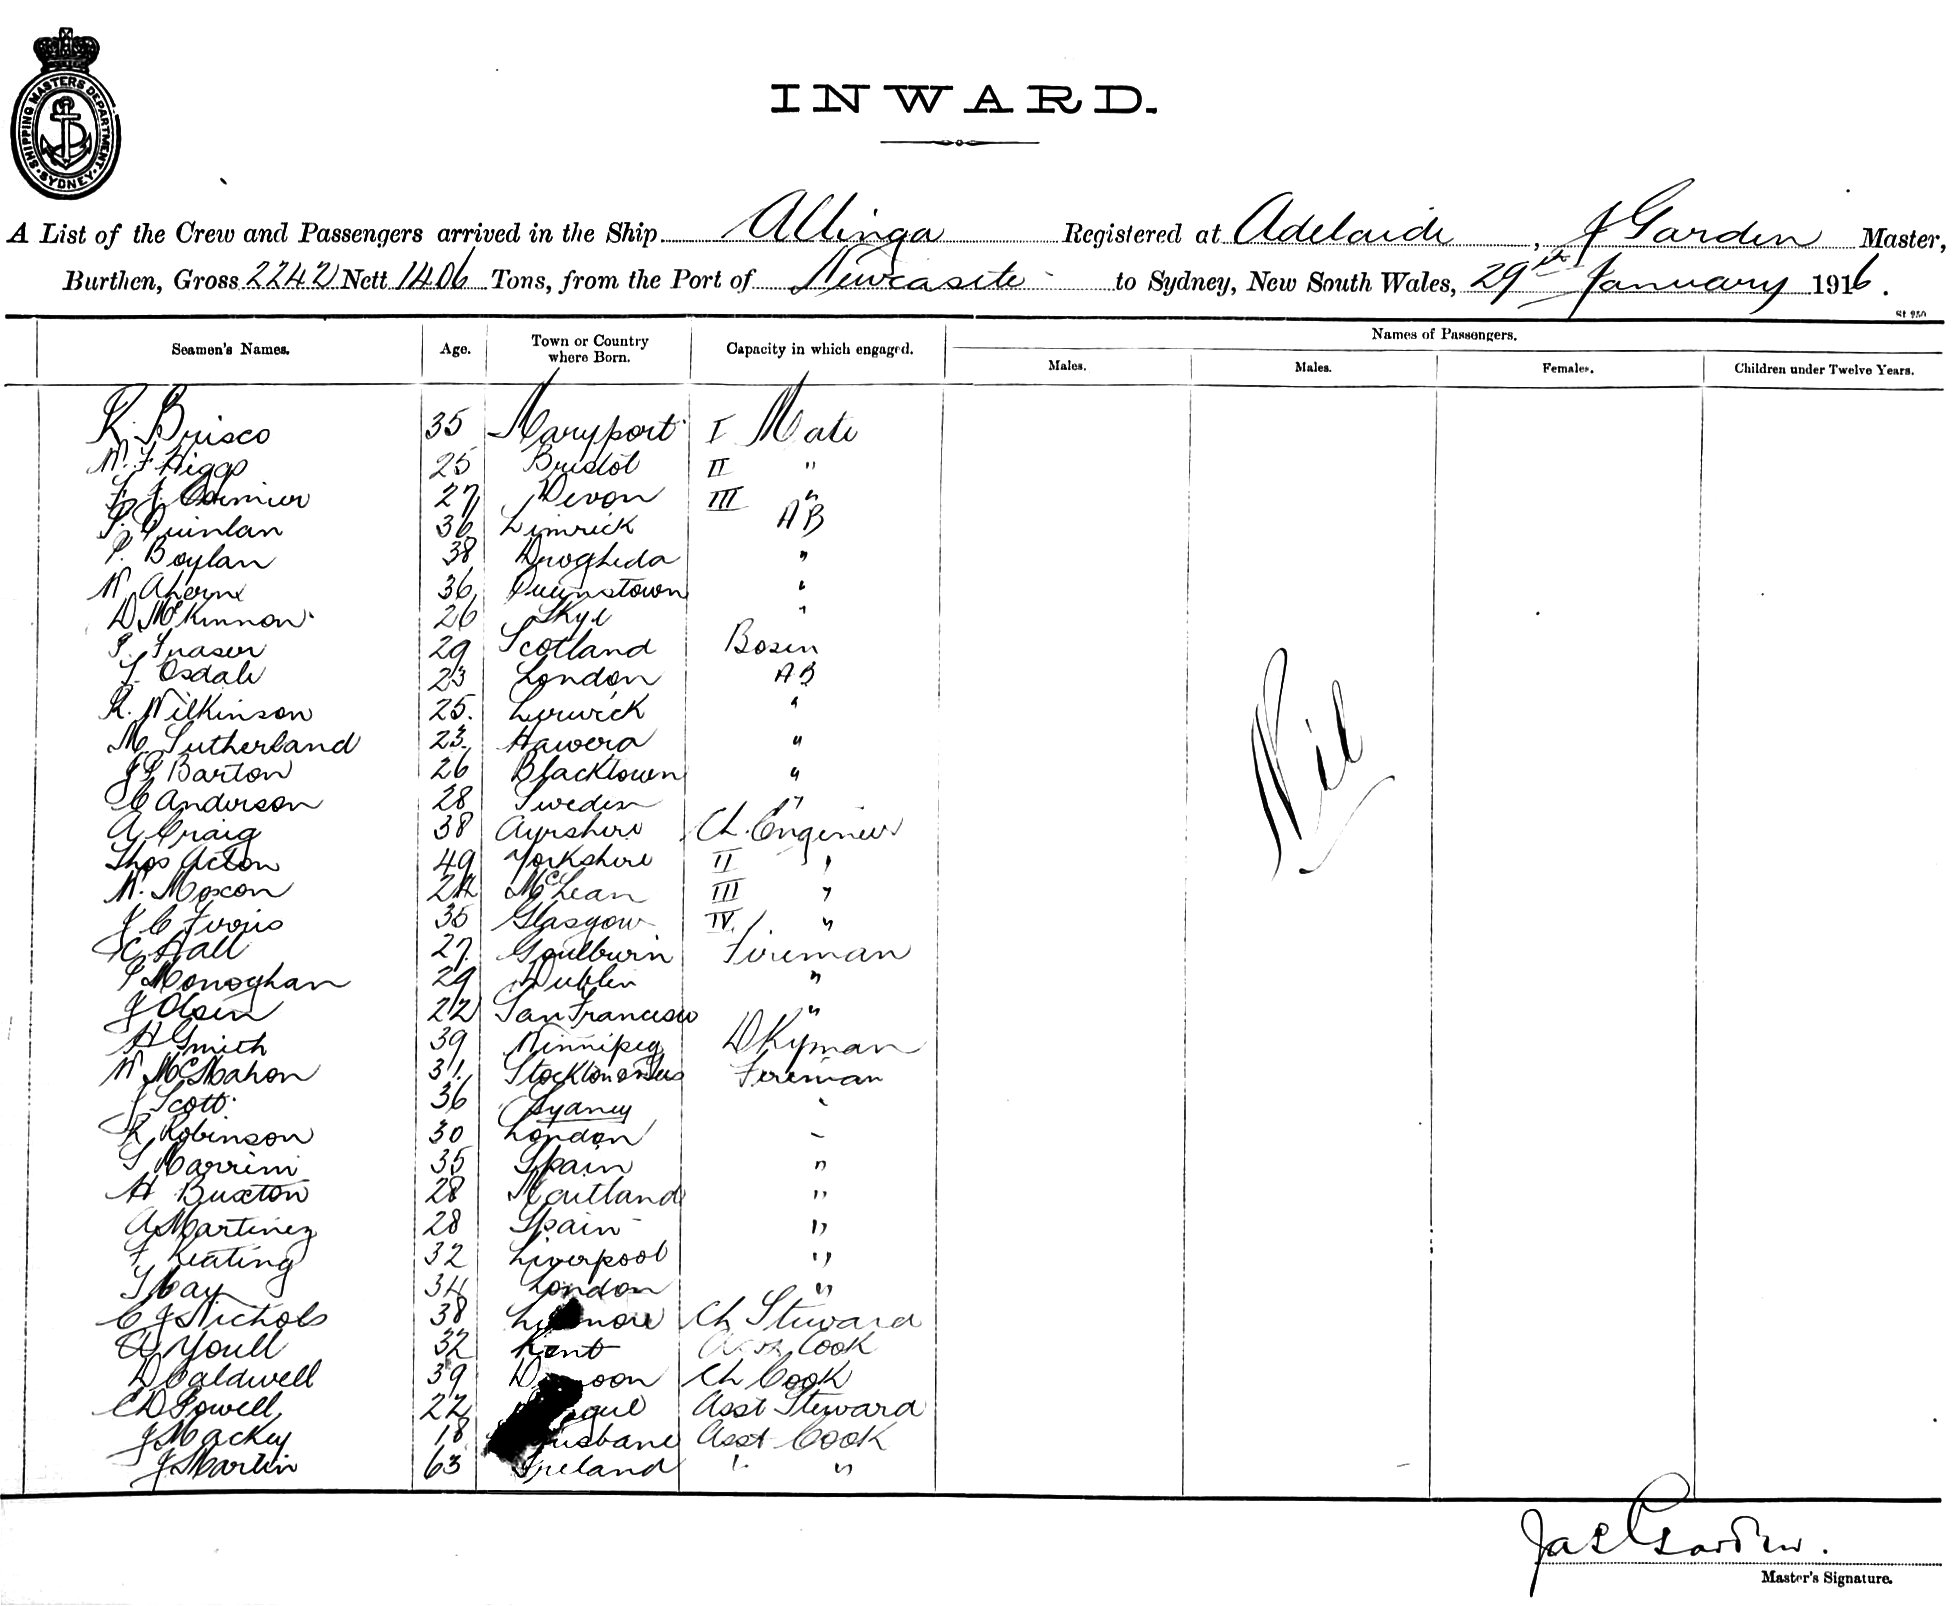 SHIPPING MASTERS DEPARTMENT
SYDNEY
INWARD.
A List of the Crew and Passengers arrived in the Ship Allinga Registered at Adelaide, J Garden Master,
Burthen, Gross 2242 Nett 1406 Tons, from the Port of Newcastle to Sydney, New South Wales, 29th January 1916.
St 950
Seamen's Names. Age. Town or Country where Born. Capacity in which engaged. Names of Passengers.
Males. Males. Females. Children under Twelve Years.
R. Brisco 35 Maryport I Mate
W. F. Higgs 25 Bristol II "
27 Devon III "
P. Quinlan 36 Limrick AB
P. Boylan 38 Drogheda "
W Aherne 36 Queenstown "
D McKinnon 26 Skye "
P. Fraser 29 Scotland Bosen
T. Osdale 23 London AB
R. Wilkinson 25. Lerwick "
M Sutherland 23. Hawera "
J P Barton 26 Blacktown "
C Anderson 28 Sweden "
A Craig 38 Ayrshire Ch. Engineer
Thos Acton 49 Yorkshire II "
W. Moxon 24 McLean III "
J C Ferris 35 Glasgow IV. "
C Hall 27. Goulburn Fireman
P Monoghan 29 Dublin "
J Olsen 22 San Francisco "
H Smith 39 Winnipeg Dkyman
W McMahon 31. Stockton on Tees Fireman
J Scott 36 Sydney "
R Robinson 30 London "
S Marrini 35 Spain "
H Buxton 28 Maitland "
A Martinez 28 Spain "
F Keating 32 Liverpool "
T Cay 34 London "
C J Nichols 38 Ch Steward
A Youll 32 Kent Cook
D Caldwell 39 Ch Cook
C D Powell 22 Asst Steward
J Mackey 18 Asst Cook
J Martin 63 Ireland " "
Nil
Jas Garden.
Master's Signature.